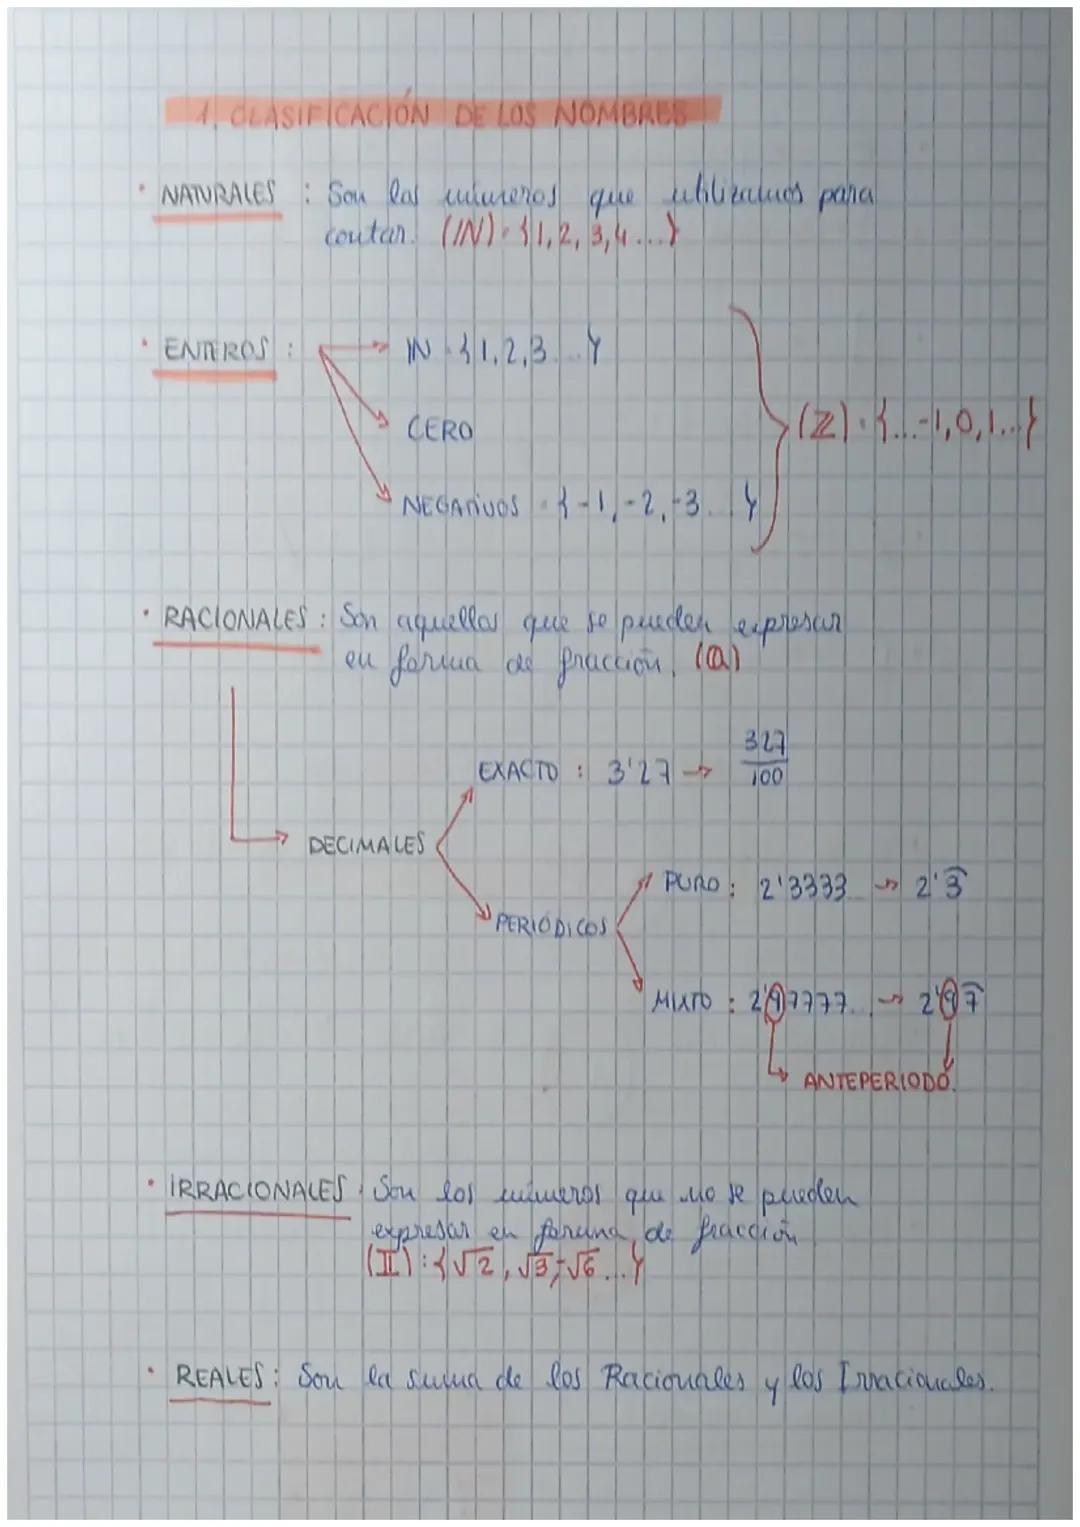 1. CLASIFICACIÓN DE LOS NOMBRES
· NATURALES : Son los números que utilizamos para
contar. (IN) = {1, 2, 3, 4...}
· ENTEROS :
IN = {1, 2, 3...}
CERO
(Z) = {...-1, 0, 1...}
NEGATIVOS = {-1, -2, -3...}
· RACIONALES : Son aquellos que se pueden expresar
en forma de fracción. (Q)
EXACTO : 3'27 → 327/100
DECIMALES
PURO : 2'3333... → 2'3̂
PERIÓDICOS
MIXTO : 2'97777... → 2'97̂
ANTEPERIODO.
· IRRACIONALES : Son los números que no se pueden
expresar en forma de fracción
(II) : {√2, √3, -√6...}
· REALES : Son la suma de los Racionales y los Irracionales.